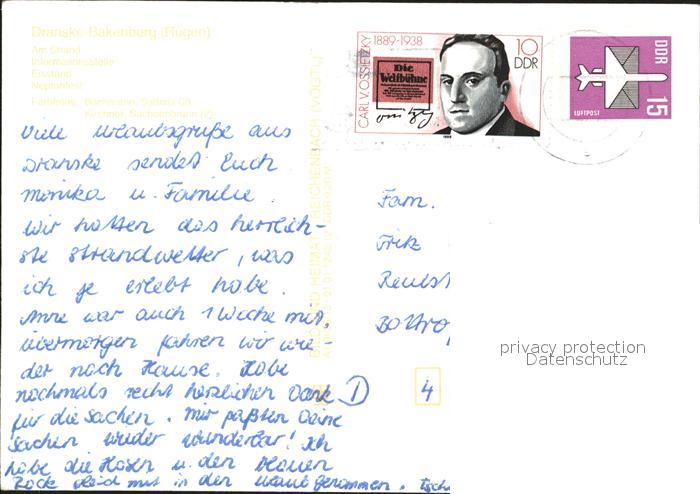 Dranske-Bakenberg (Rügen)
Am Strand
Informationsstelle
Eisstand
Neptunfest
Farbfotos:
Viele Urlaubsgrüße aus
Dranske sendet Euch
Monika u. Familie.
Wir hatten das herrlich-
ste Strandwetter, was
ich je erlebt habe.
Anne war auch 1 Woche mit,
übermorgen fahren wir wie-
der nach Hause. Habe
nochmals recht herzlichen Dank
für die Sachen. Mir paßten Deine
Sachen wieder wunderbar! Ich
habe die Hosen u. den blauen
Rock gleich mit in den Urlaub genommen. Tsch
BILD UND HEIMAT REICHENBACH (VOGTL)
CARL V. OSSIETZKY 1889-1938
Die
Weltbühne
10
DDR
DDR
15
LUFTPOST
Fam.
Fritz
Bottrop
D
4
privacy protection
Datenschutz